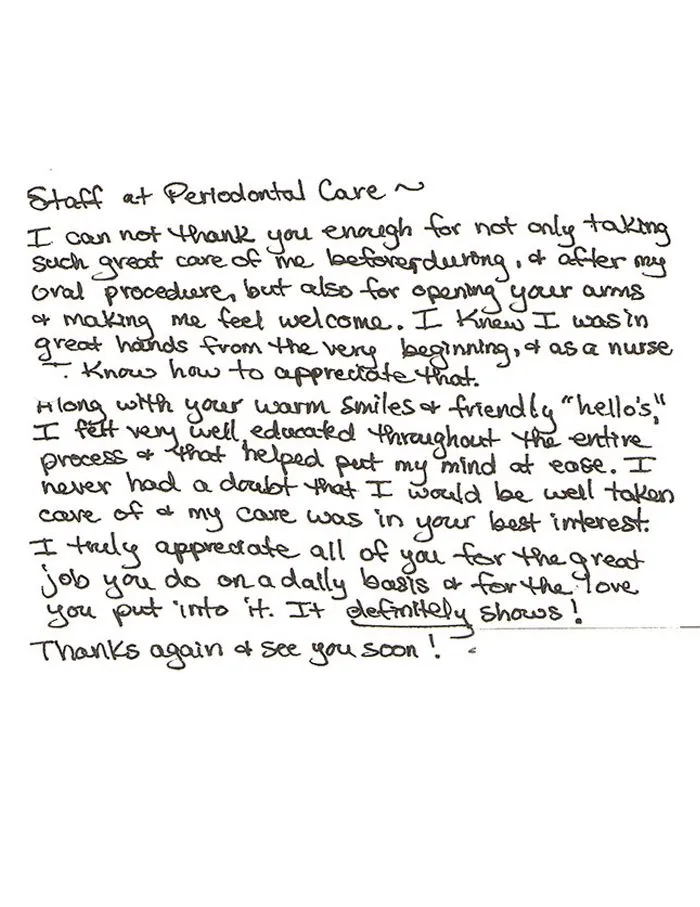 Staff at Periodontal Care ~
I can not thank you enough for not only taking
such great care of me before, during, & after my
oral procedure, but also for opening your arms
& making me feel welcome. I knew I was in
great hands from the very beginning, & as a nurse
I know how to appreciate that.
Along with your warm smiles & friendly "hello's,"
I felt very well educated throughout the entire
process & that helped put my mind at ease. I
never had a doubt that I would be well taken
care of & my care was in your best interest.
I truly appreciate all of you for the great
job you do on a daily basis & for the love
you put into it. It definitely shows!
Thanks again & see you soon!